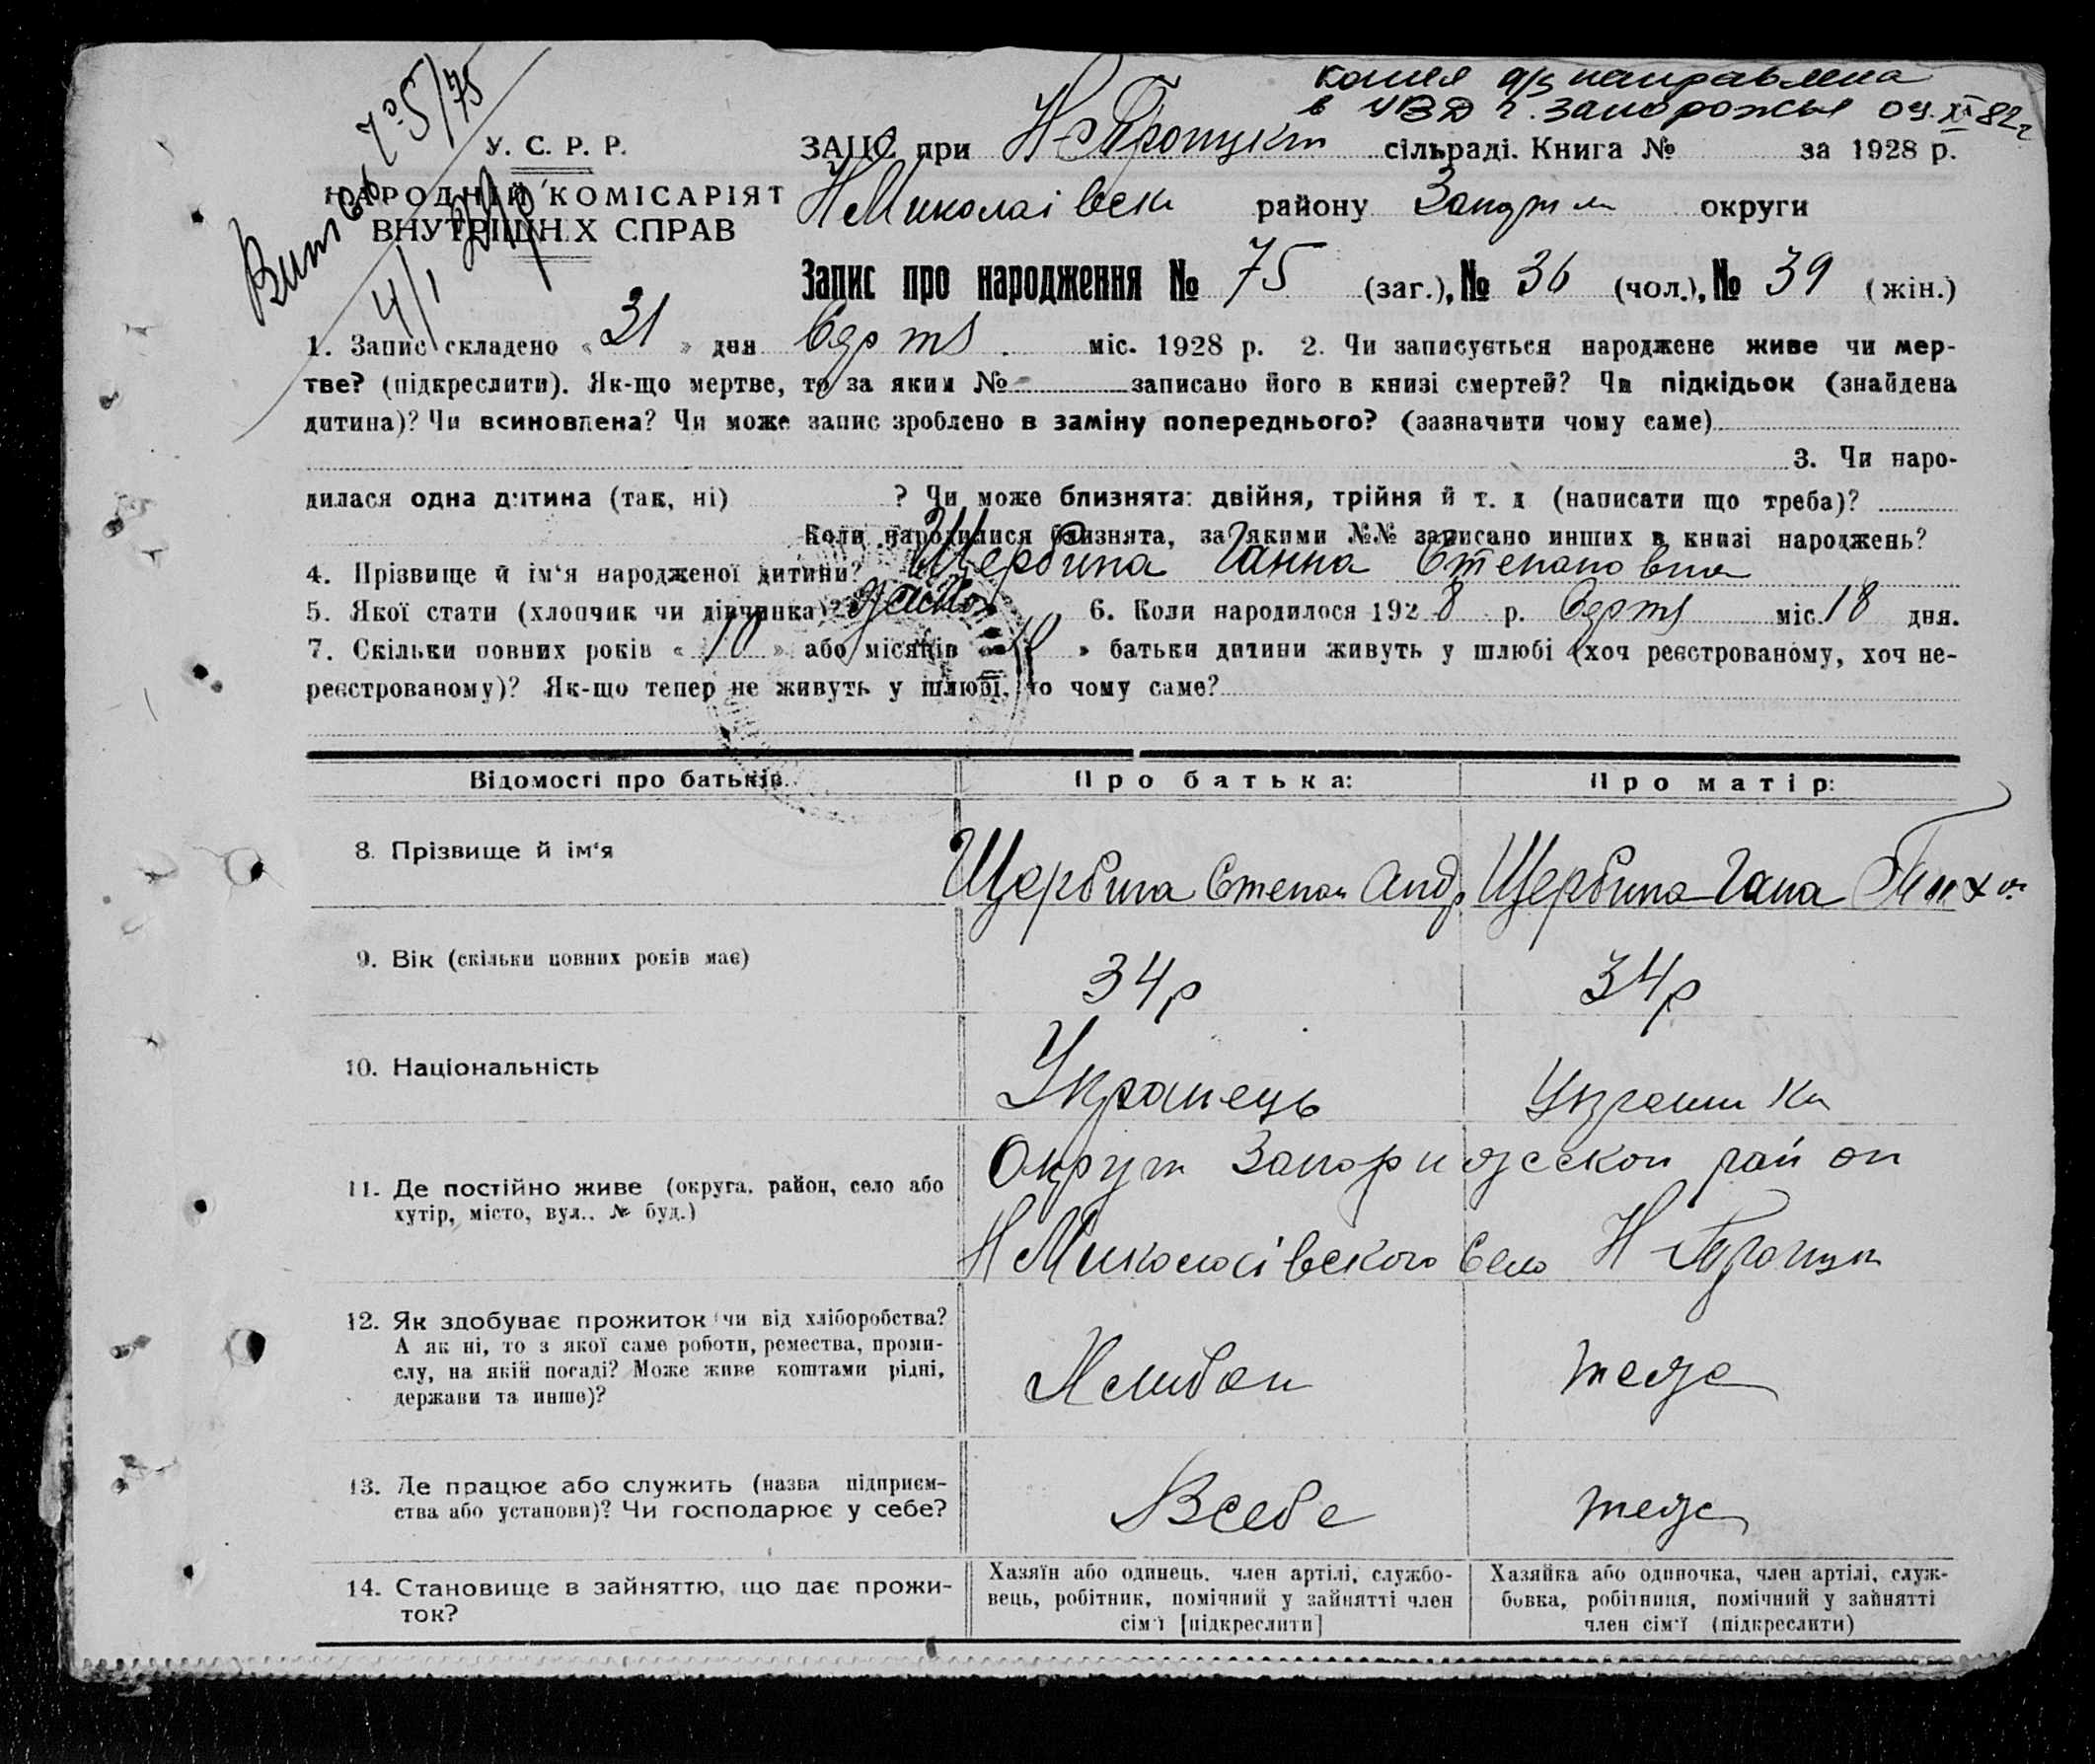 копия а/з направлена
в УВД г. Запорожья 09.XI 82г
У. С. Р. Р.
НАРОДНІЙ КОМІСАРІЯТ
ВНУТРІШНІХ СПРАВ
ЗАПИС при сільраді. Книга № за 1928 р.
НМиколаівск району округи
Запис про народження № 75 (заг.), № 36 (чол.), № 39 (жін.)
1. Запис складено « 31 » дня міс. 1928 р. 2. Чи записується народжене живе чи мер-
тве? (підкреслити). Як-що мертве, то за яким № записано його в книзі смертей? Чи підкідьок (знайдена
дитина)? Чи всиновлена? Чи може запис зроблено в заміну попереднього? (зазначити чому саме)
3. Чи наро-
дилася одна дитина (так, ні) ? Чи може близнята: двійня, трійня й т. д (написати що треба)?
Коли народилися близнята, за якими №№ записано инших в книзі народжень?
4. Прізвище й ім‘я народженої дитини? Щербина Ганна Степановна
5. Якої стати (хлопчик чи дівчинка)? 6. Коли народилося 1928 р. міс. 18 дня.
7. Скільки повних років « 10 » або місяців « » батьки дитини живуть у шлюбі (хоч реєстрованому, хоч не-
реєстрованому)? Як-що тепер не живуть у шлюбі, то чому саме?
Відомості про батьків. Про батька: Про матір:
8. Прізвище й ім‘я Щербина Степан Андр Щербина Гана Тихо
9. Вік (скільки повних років має) 34р 34р
10. Національність Українець Українка
11. Де постійно живе (округа, район, село або
хутір, місто, вул., № буд.)
НМиколаівского село
12. Як здобуває прожиток чи від хліборобства?
А як ні, то з якої саме роботи, ремества, проми-
слу, на якій посаді? Може живе коштами рідні,
держави та инше)?
теже
13. Де працює або служить (назва підприєм-
ства або установи)? Чи господарює у себе?
Всебе теже
14. Становище в зайняттю, що дає прожи-
ток?
Хазяїн або одинець, член артілі, службо-
вець, робітник, помічний у зайнятті член
сім‘ї [підкреслити]
Хазяйка або одиночка, член артілі, служ-
бовка, робітниця, помічний у зайнятті
член сім‘ї (підкреслити)